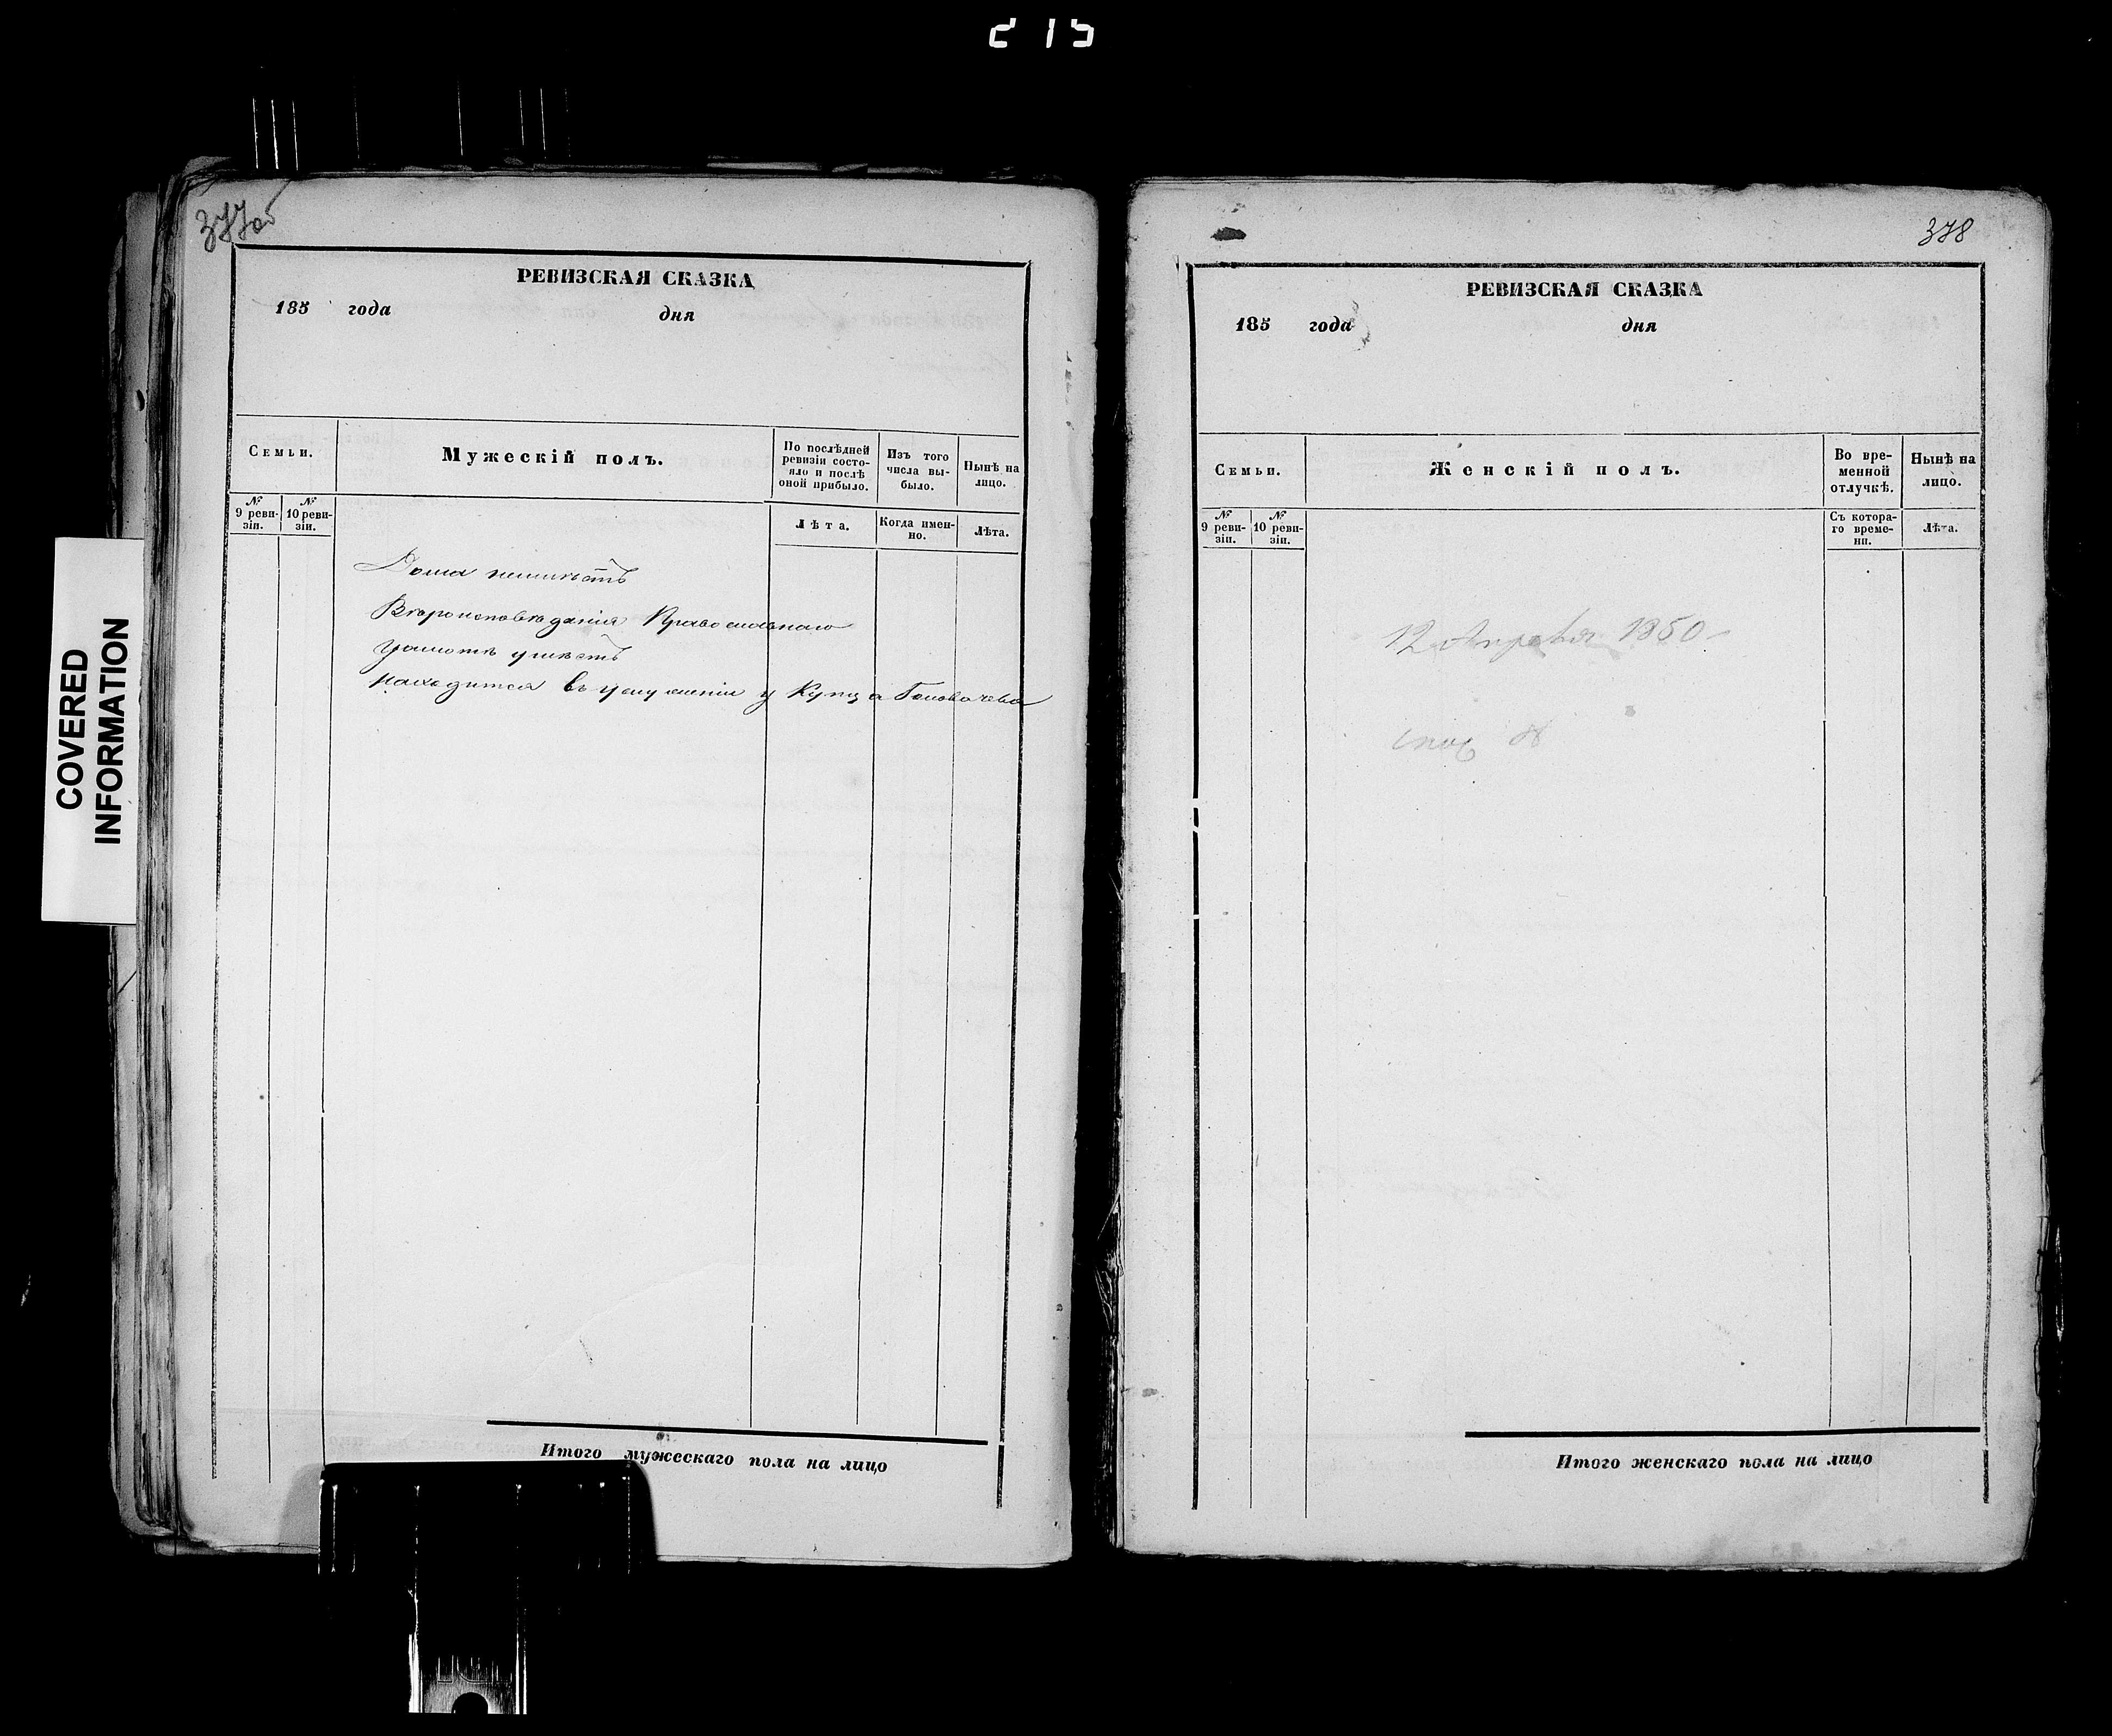 215
377об
РЕВИЗСКАЯ СКАЗКА
185 года дня
Семьи.
Мужескій полъ.
По послѣдней ревизіи состояло и послѣ оной прибыло.
Изъ того числа выбыло.
Нынѣ на лицо.
№ 9 ревизіи.
№ 10 ревизіи.
Лѣта.
Когда именно.
Лѣта.
Дома неимѣетъ
Вѣроисповѣданія Православнаго
Грамотѣ умѣетъ
находится въ услуженіи у Купца Головачева
Итого мужескаго пола на лицо
COVERED
INFORMATION
378
РЕВИЗСКАЯ СКАЗКА
185 года дня
Семьи.
Женскій полъ.
Во временной отлучкѣ.
Нынѣ на лицо.
№ 9 ревизіи.
№ 10 ревизіи.
Съ котораго времени.
Лѣта.
12 Апрѣля 1850
Итого женскаго пола на лицо